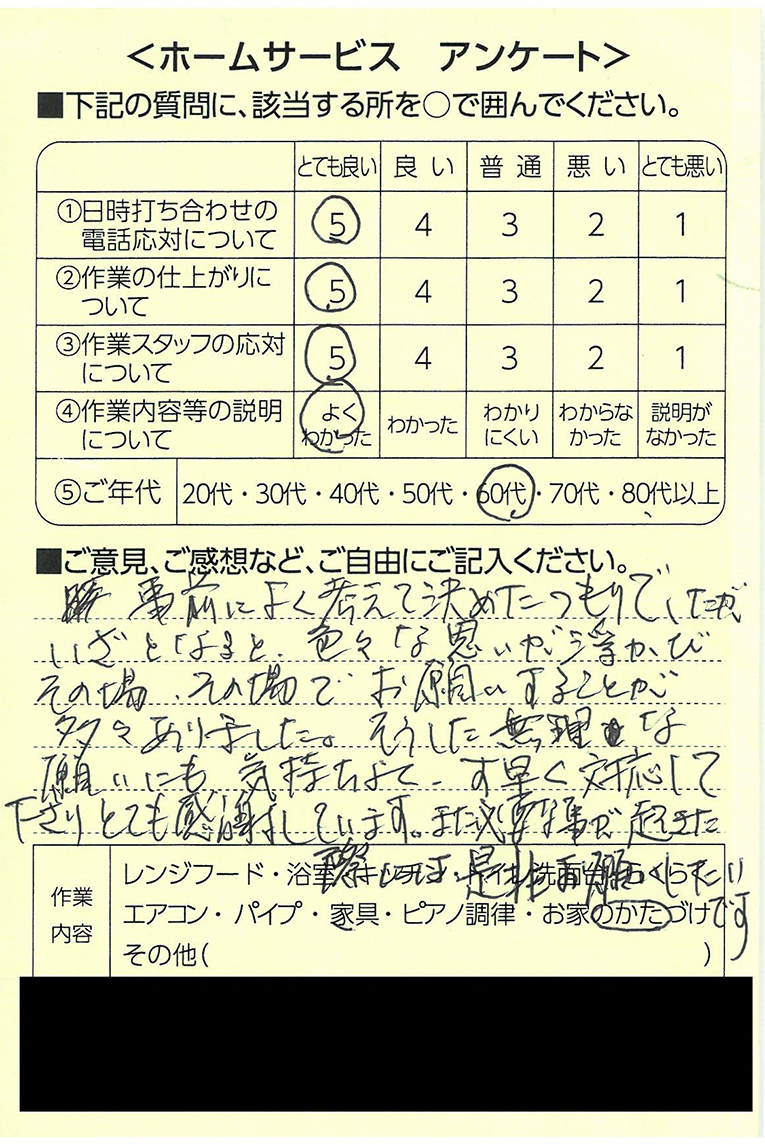 <ホームサービス アンケート>
■下記の質問に、該当する所を○で囲んでください。
とても良い 良い 普通 悪い とても悪い
①日時打ち合わせの
電話応対について 5 4 3 2 1
②作業の仕上がりに
ついて 5 4 3 2 1
③作業スタッフの応対
について 5 4 3 2 1
④作業内容等の説明
について よく
わかった わかった わかり
にくい わからな
かった 説明が
なかった
⑤ご年代 20代・30代・40代・50代・60代・70代・80代以上
■ご意見、ご感想など、ご自由にご記入ください。
事前によく考えて決めたつもりでしたが
いざとなると、色々な思いが浮かび
その場、その場でお願いすることが
多々ありました。そうした無理な
願いにも気持ちよく、す早く対応して
下さりとても感謝しています。また必要な事が起きた
際には是非お願いしたい
です
作業
内容
レンジフード・浴室・キッチン・トイレ・洗面台・らくらく
エアコン・パイプ・家具・ピアノ調律・お家のかたづけ
その他( )